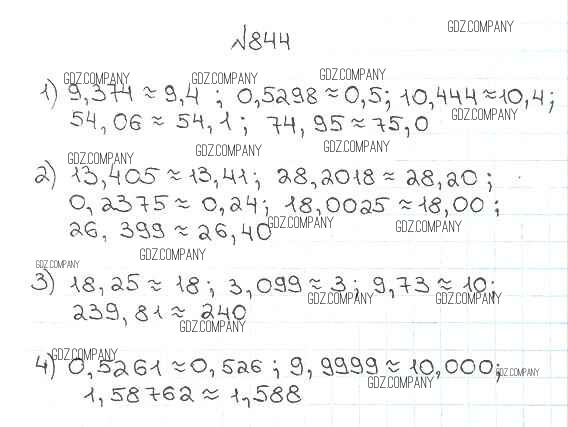 GDZ.COMPANY
№844
GDZ.COMPANY GDZ.COMPANY GDZ.COMPANY
1) 9,374 ≈ 9,4 ; 0,5298 ≈ 0,5; 10,444 ≈ 10,4;
GDZ.COMPANY
54,06 ≈ 54,1; 74,95 ≈ 75,0
GDZ.COMPANY GDZ.COMPANY GDZ.COMPANY
2) 13,405 ≈ 13,41; 28,2018 ≈ 28,20;
0,2375 ≈ 0,24; 18,0025 ≈ 18,00;
GDZ.COMPANY GDZ.COMPANY
26,399 ≈ 26,40
GDZ.COMPANY
GDZ.COMPANY
3) 18,25 ≈ 18; 3,099 ≈ 3; 9,73 ≈ 10;
GDZ.COMPANY GDZ.COMPANY
239,81 ≈ 240
GDZ.COMPANY
GDZ.COMPANY
4) 0,5261 ≈ 0,526; 9,9999 ≈ 10,000;
GDZ.COMPANY GDZ.COMPANY
1,58762 ≈ 1,588